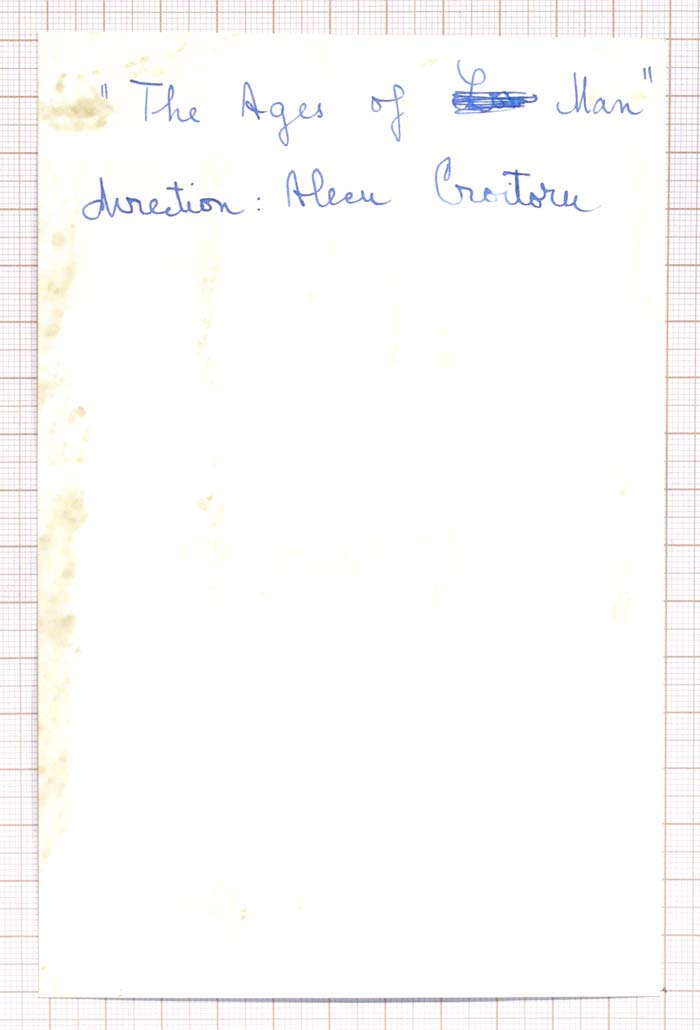 "The Ages of Man"
direction: Alecu Croitoru